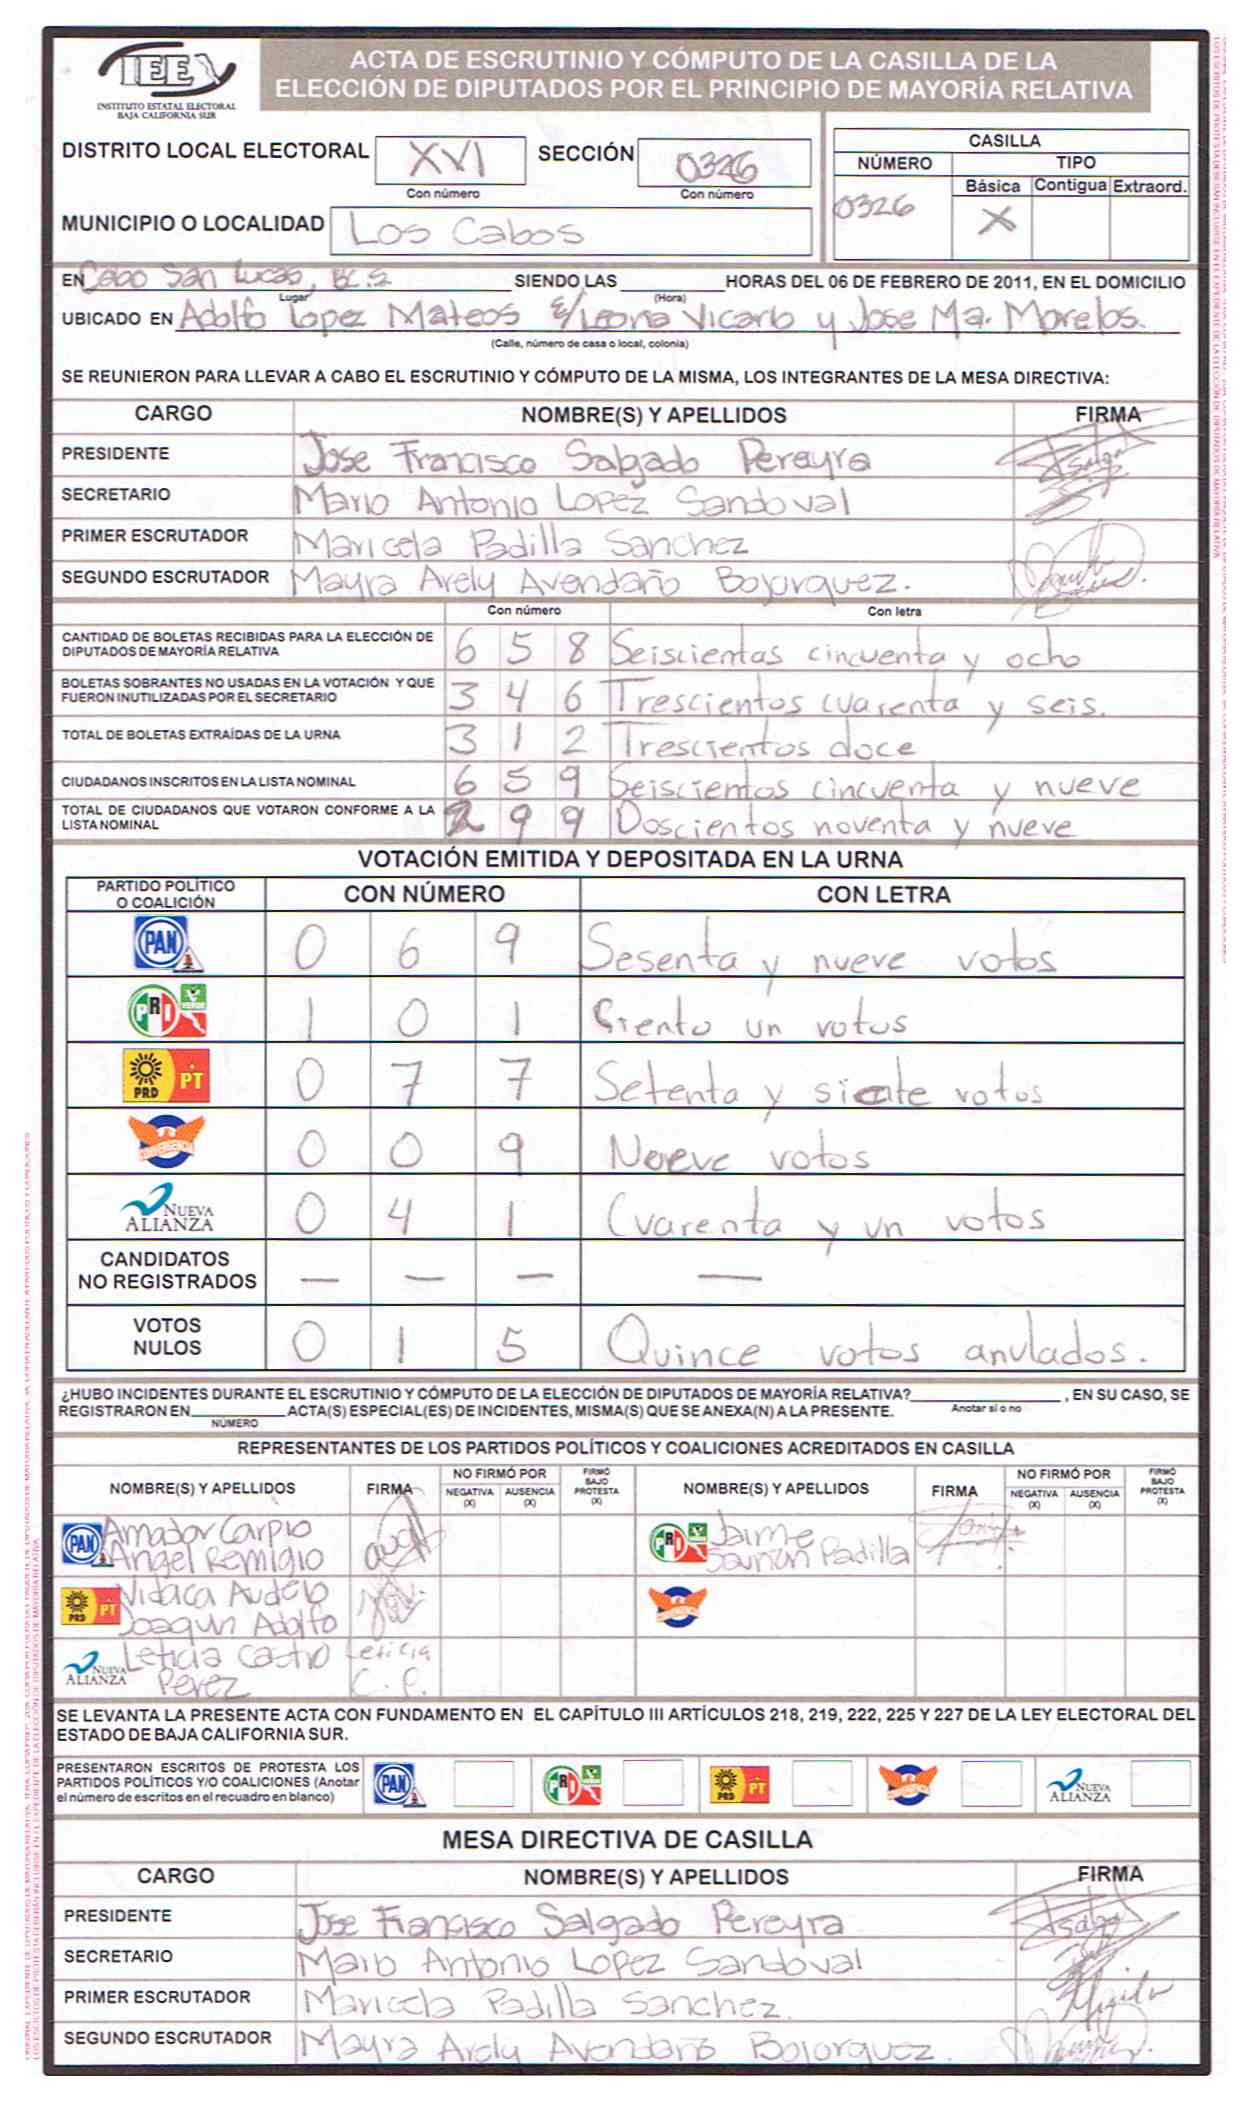 IEE
INSTITUTO ESTATAL ELECTORAL
BAJA CALIFORNIA SUR
ACTA DE ESCRUTINIO Y CÓMPUTO DE LA CASILLA DE LA
ELECCIÓN DE DIPUTADOS POR EL PRINCIPIO DE MAYORÍA RELATIVA
DISTRITO LOCAL ELECTORAL XVI SECCIÓN 0326
Con número Con número
CASILLA
NÚMERO TIPO
Básica Contigua Extraord.
0326 X
MUNICIPIO O LOCALIDAD Los Cabos
EN Cabo San Lucas, B.C.S SIENDO LAS HORAS DEL 06 DE FEBRERO DE 2011, EN EL DOMICILIO
Lugar (Hora)
UBICADO EN Adolfo Lopez Mateos E/Leona Vicario y Jose Ma. Morelos.
(Calle, número de casa o local, colonia)
SE REUNIERON PARA LLEVAR A CABO EL ESCRUTINIO Y CÓMPUTO DE LA MISMA, LOS INTEGRANTES DE LA MESA DIRECTIVA:
CARGO NOMBRE(S) Y APELLIDOS FIRMA
PRESIDENTE Jose Francisco Salgado Pereyra
SECRETARIO Mario Antonio Lopez Sandoval
PRIMER ESCRUTADOR Maricela Padilla Sanchez
SEGUNDO ESCRUTADOR Mayra Arely Avendaño Bojorquez.
Con número Con letra
CANTIDAD DE BOLETAS RECIBIDAS PARA LA ELECCIÓN DE
DIPUTADOS DE MAYORÍA RELATIVA 6 5 8 Seiscientas cincuenta y ocho
BOLETAS SOBRANTES NO USADAS EN LA VOTACIÓN Y QUE
FUERON INUTILIZADAS POR EL SECRETARIO 3 4 6 Trescientos cuarenta y seis.
TOTAL DE BOLETAS EXTRAÍDAS DE LA URNA 3 1 2 Trescientos doce
CIUDADANOS INSCRITOS EN LA LISTA NOMINAL 6 5 9 Seiscientos cincuenta y nueve
TOTAL DE CIUDADANOS QUE VOTARON CONFORME A LA
LISTA NOMINAL 2 9 9 Doscientos noventa y nueve
VOTACIÓN EMITIDA Y DEPOSITADA EN LA URNA
PARTIDO POLÍTICO
O COALICIÓN CON NÚMERO CON LETRA
PAN 0 6 9 Sesenta y nueve votos
PRI VERDE 1 0 1 Siento un votos
PRD PT 0 7 7 Setenta y siete votos
CONVERGENCIA 0 0 9 Nueve votos
NUEVA
ALIANZA 0 4 1 Cuarenta y un votos
CANDIDATOS
NO REGISTRADOS — — — —
VOTOS
NULOS 0 1 5 Quince votos anulados.
¿HUBO INCIDENTES DURANTE EL ESCRUTINIO Y CÓMPUTO DE LA ELECCIÓN DE DIPUTADOS DE MAYORÍA RELATIVA? , EN SU CASO, SE
Anotar sí o no
REGISTRARON EN ACTA(S) ESPECIAL(ES) DE INCIDENTES, MISMA(S) QUE SE ANEXA(N) A LA PRESENTE.
NÚMERO
REPRESENTANTES DE LOS PARTIDOS POLÍTICOS Y COALICIONES ACREDITADOS EN CASILLA
NOMBRE(S) Y APELLIDOS FIRMA NO FIRMÓ POR NEGATIVA (X) AUSENCIA (X) FIRMÓ BAJO PROTESTA (X) NOMBRE(S) Y APELLIDOS FIRMA NO FIRMÓ POR NEGATIVA (X) AUSENCIA (X) FIRMÓ BAJO PROTESTA (X)
PAN Amador Carpio PRI VERDE Jaime
Angel Remigio Padilla
PRD PT Vidaca Audelo CONVERGENCIA
Joaquin Adolfo
NUEVA ALIANZA Leticia Castro Leticia
Perez C. P.
SE LEVANTA LA PRESENTE ACTA CON FUNDAMENTO EN EL CAPÍTULO III ARTÍCULOS 218, 219, 222, 225 Y 227 DE LA LEY ELECTORAL DEL
ESTADO DE BAJA CALIFORNIA SUR.
PRESENTARON ESCRITOS DE PROTESTA LOS
PARTIDOS POLÍTICOS Y/O COALICIONES (Anotar
el número de escritos en el recuadro en blanco) PAN PRI VERDE PRD PT CONVERGENCIA NUEVA ALIANZA
MESA DIRECTIVA DE CASILLA
CARGO NOMBRE(S) Y APELLIDOS FIRMA
PRESIDENTE Jose Francisco Salgado Pereyra
SECRETARIO Mario Antonio Lopez Sandoval
PRIMER ESCRUTADOR Maricela Padilla Sanchez.
SEGUNDO ESCRUTADOR Mayra Arely Avendaño Bojorquez.